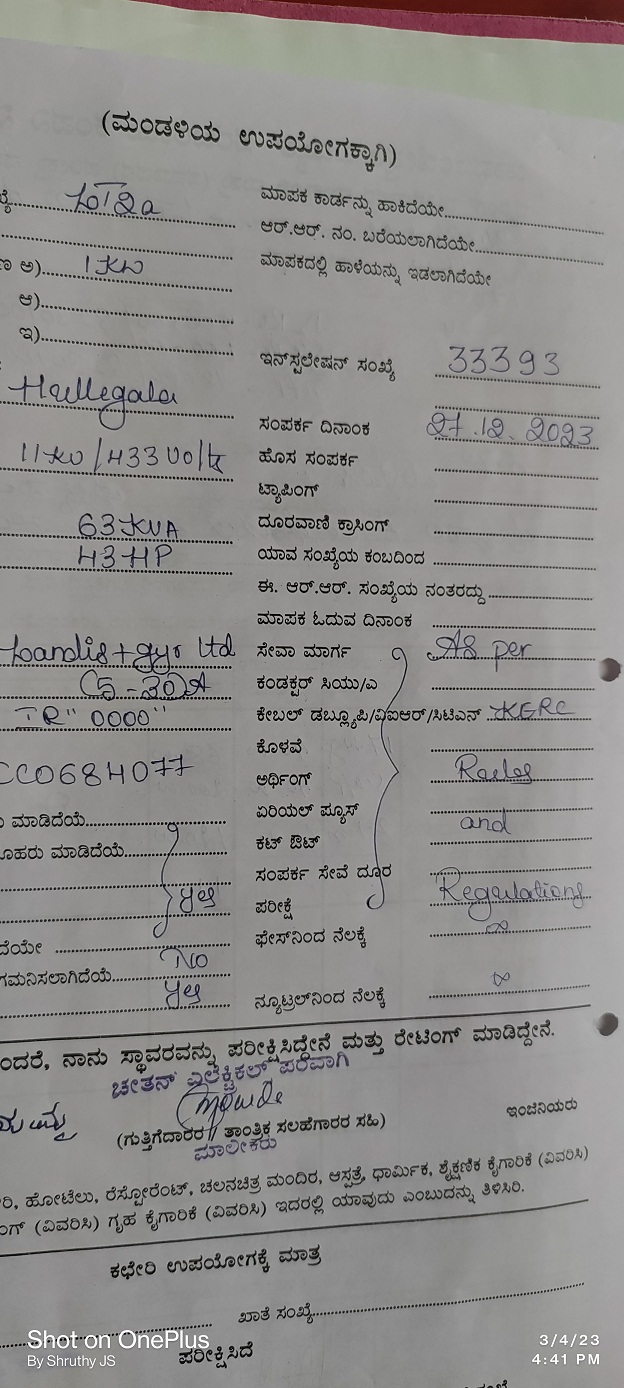 (ಮಂಡಳಿಯ ಉಪಯೋಗಕ್ಕಾಗಿ)
LOT2a ಮಾಪಕ ಕಾರ್ಡನ್ನು ಹಾಕಿದೆಯೇ
ಆರ್.ಆರ್. ನಂ. ಬರೆಯಲಾಗಿದೆಯೇ
ಅ) 1 KW ಮಾಪಕದಲ್ಲಿ ಹಾಳೆಯನ್ನು ಇಡಲಾಗಿದೆಯೇ
ಆ)
ಇ)
ಇನ್‌ಸ್ಟಲೇಷನ್ ಸಂಖ್ಯೆ 33393
Hullegala
ಸಂಪರ್ಕ ದಿನಾಂಕ 27.12.2023
11KV/433 Volts ಹೊಸ ಸಂಪರ್ಕ
ಟ್ಯಾಪಿಂಗ್
63 KVA ದೂರವಾಣಿ ಕ್ರಾಸಿಂಗ್
43 HP ಯಾವ ಸಂಖ್ಯೆಯ ಕಂಬದಿಂದ
ಈ. ಆರ್.ಆರ್. ಸಂಖ್ಯೆಯ ನಂತರದ್ದು
ಮಾಪಕ ಓದುವ ದಿನಾಂಕ
Landis+gyr Ltd ಸೇವಾ ಮಾರ್ಗ As per
(5-30)A ಕಂಡಕ್ಟರ್ ಸಿಯು/ಎ
IR" 0000" ಕೇಬಲ್ ಡಬ್ಲ್ಯೂಪಿ/ವಿಐಆರ್/ಸಿಟಿಎಸ್ KERC
ಕೊಳವೆ
CC0684077 ಅರ್ಥಿಂಗ್ Rules
ಮಾಡಿದೆಯೆ ಏರಿಯಲ್ ಫ್ಯೂಸ್ and
ಮಾಡಿದೆಯೆ ಕಟ್ ಔಟ್
ಸಂಪರ್ಕ ಸೇವೆ ದೂರ
Yes ಪರೀಕ್ಷೆ Regulations
ಫೇಸ್‌ನಿಂದ ನೆಲಕ್ಕೆ ∞
No
Yes ನ್ಯೂಟ್ರಲ್‌ನಿಂದ ನೆಲಕ್ಕೆ ∞
ನಾನು ಸ್ಥಾವರವನ್ನು ಪರೀಕ್ಷಿಸಿದ್ದೇನೆ ಮತ್ತು ರೇಟಿಂಗ್ ಮಾಡಿದ್ದೇನೆ.
ಚೇತನ್ ಎಲೆಕ್ಟ್ರಿಕಲ್ ಪರವಾಗಿ
(ಗುತ್ತಿಗೆದಾರರ // ತಾಂತ್ರಿಕ ಸಲಹೆಗಾರರ ಸಹಿ) ಇಂಜಿನಿಯರು
ಮಾಲೀಕರು
ಹೋಟೆಲು, ರೆಸ್ಟೋರೆಂಟ್, ಚಲನಚಿತ್ರ ಮಂದಿರ, ಆಸ್ಪತ್ರೆ, ಧಾರ್ಮಿಕ, ಶೈಕ್ಷಣಿಕ ಕೈಗಾರಿಕೆ (ವಿವರಿಸಿ)
(ವಿವರಿಸಿ) ಗೃಹ ಕೈಗಾರಿಕೆ (ವಿವರಿಸಿ) ಇದರಲ್ಲಿ ಯಾವುದು ಎಂಬುದನ್ನು ತಿಳಿಸಿರಿ.
ಕಛೇರಿ ಉಪಯೋಗಕ್ಕೆ ಮಾತ್ರ
ಖಾತೆ ಸಂಖ್ಯೆ
ಪರೀಕ್ಷಿಸಿದೆ
Shot on OnePlus
By Shruthy JS
3/4/23
4:41 PM